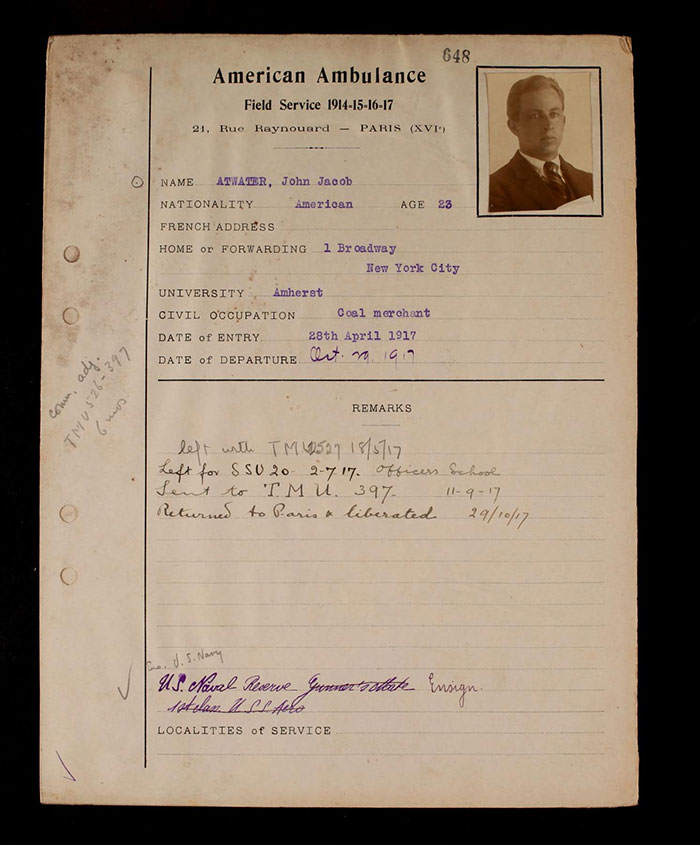 648
American Ambulance
Field Service 1914-15-16-17
21, Rue Raynouard — PARIS (XVIe)
NAME ATWATER, John Jacob
NATIONALITY American AGE 23
FRENCH ADDRESS
HOME or FORWARDING 1 Broadway
New York City
UNIVERSITY Amherst
CIVIL OCCUPATION Coal merchant
DATE of ENTRY 28th April 1917
DATE of DEPARTURE Oct. 29 1917
comm. adj.
TMU 526-397
6 mos.
REMARKS
left with TMU 527 18/5/17
Left for SSU 20 - 2-7 17. Officers School
Sent to T.M.U. 397- 11-9-17
Returned to Paris & liberated 29/10/17
U.S. Navy
U.S. Naval Reserve Gunner's Mate Ensign.
1st class. U.S.S.
LOCALITIES of SERVICE